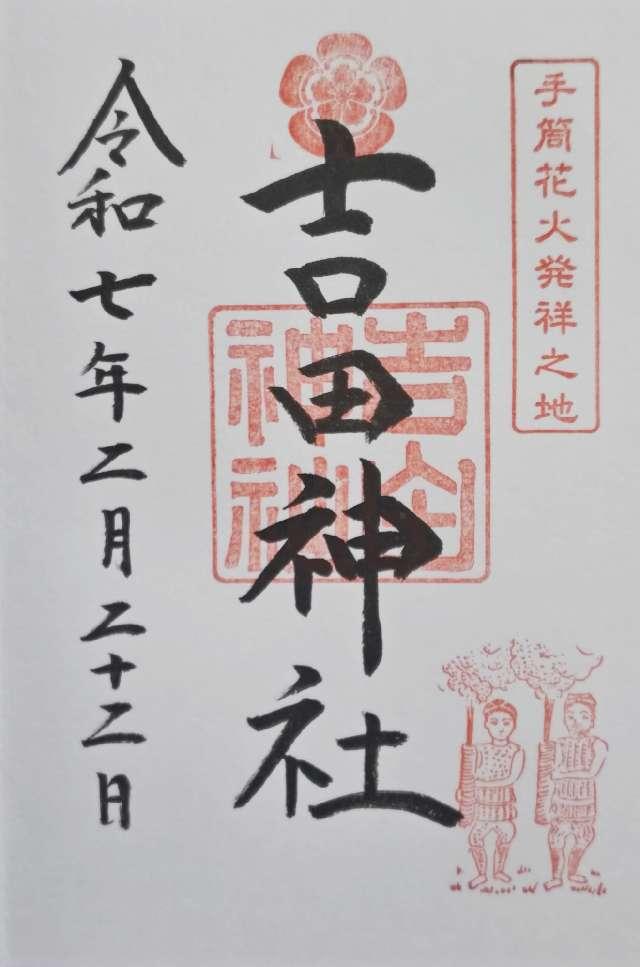 手筒花火発祥之地
吉田神社
令和七年二月二十二日